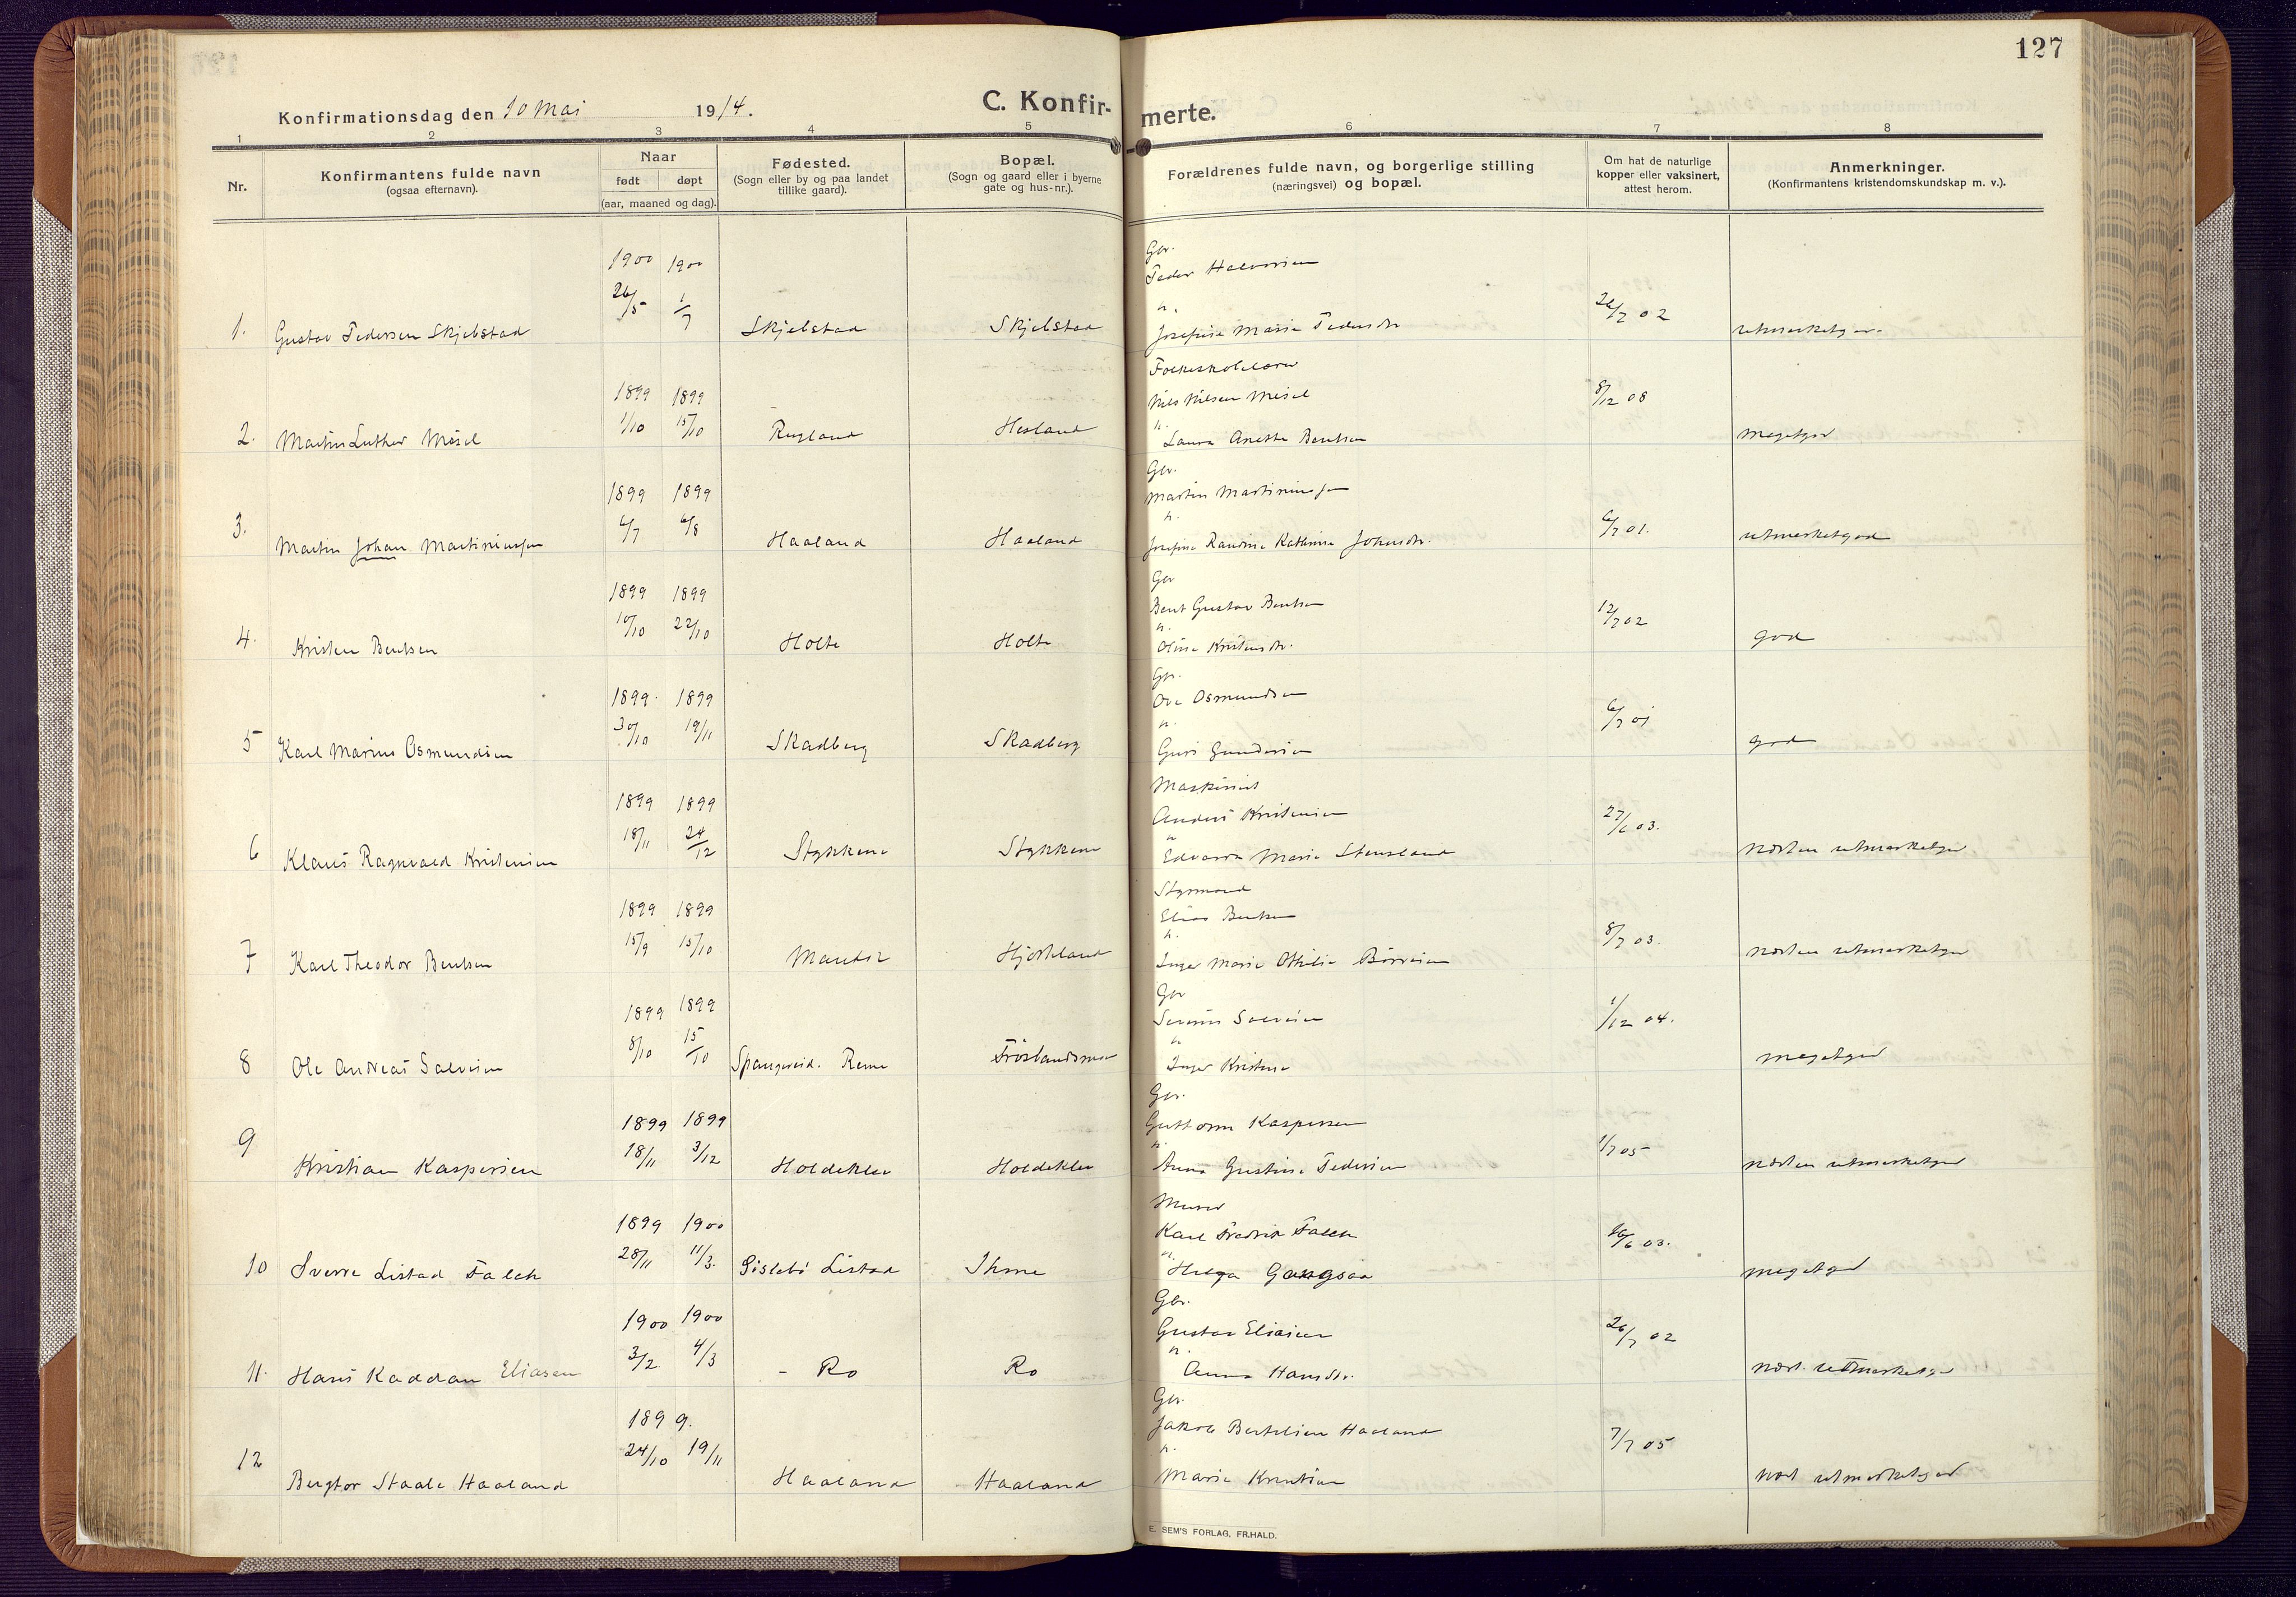 127
C. Konfir- merte.
Konfirmationsdag den 10 Mai 1914.
1 2 3 4 5 6 7 8
Nr.
Konfirmantens fulde navn
(ogsaa efternavn).
Naar
født døpt
(aar, maaned og dag).
Fødested.
(Sogn eller by og paa landet
tillike gaard).
Bopæl.
(Sogn og gaard eller i byerne
gate og hus-nr.).
Forældrenes fulde navn, og borgerlige stilling
(næringsvei) og bopæl.
Om hat de naturlige
kopper eller vaksinert,
attest herom.
Anmerkninger.
(Konfirmantens kristendomskundskap m. v.).
Gbr.
1900 1900 Peder Halvorsen
26/5 1/7 26/7 02
1. Gustav Pedersen Skjelstad Skjelstad Skjelstad Josefine Marie Pedersdtr
Folkeskolelærer
1899 1899 Nils Nilsen Mesel 8/12 08
1/10 15/10 h.
2. Martin Luther Mesel Rugland Hesland Laura Anette Bentsen megetgod
Gbr.
1899 1899 Martin Martiniussen
6/7 6/8 h.
3. Martin Johan Martiniussen Haaland Haaland Josefine Randine Kathrine Johnsdtr. 6/7 01. utmerketgod
Gbr
1899 1899 Bent Gustav Bentsen
10/10 22/10 h. 12/7 02
4. Kristen Bentsen Holte Holte Oline Kristensdtr. god
Gbr.
1899 1899 Ove Osmundsen
30/10 19/11 h. 6/7 01
5 Karl Marius Osmundsen Skadberg Skadberg Guri Gundersen god
Maskinist
1899 1899 Anders Kristensen
18/11 24/12 h. 27/6 03.
6 Klaus Ragnvald Kristensen Stykkene Stykkene Edvarda Marie Stensland næsten utmerketgod
Styrmand
1899 1899 Elias Bentsen
15/9 15/10 h. 8/7 03.
7 Karl Theodor Bentsen Mandal Hjortland Inger Marie Othilie næsten utmerketgod
Gbr
1899 1899 Salvesen 1/12 04.
8/10 15/10 h.
8 Ole Andreas Salvesen Spangereid. Reme Frøslandsmoen Inger Kristine megetgod
Gbr.
1899 1899 Guttorm Kaspersen
18/11 3/12 h. 1/7 05
9 Kristian Kaspersen Holdeklev Holdeklev Anna Gustine Pedersen næsten utmerketgod
Murer
1899 1900 Karl Fredrik Falck
28/11 11/3. h. 16/6 03.
10 Sverre Listad Falck Gislebö Listad Ihme Helga Gangsaa megetgod
Gbr.
1900 1900 Gustav Eliasen
3/2 4/3 h. 26/7 02
11. Hans Kaddan Eliasen - Ro Ro Anna Hansdtr. næst. utmerketgod
Gbr.
1899. Jakob Bertelsen Haaland
24/10 19/11 h. 7/7 05
12 Bergtor Staale Haaland Haaland Haaland Marie næst utmerketgod
E. SEM'S FORLAG, FR.HALD.